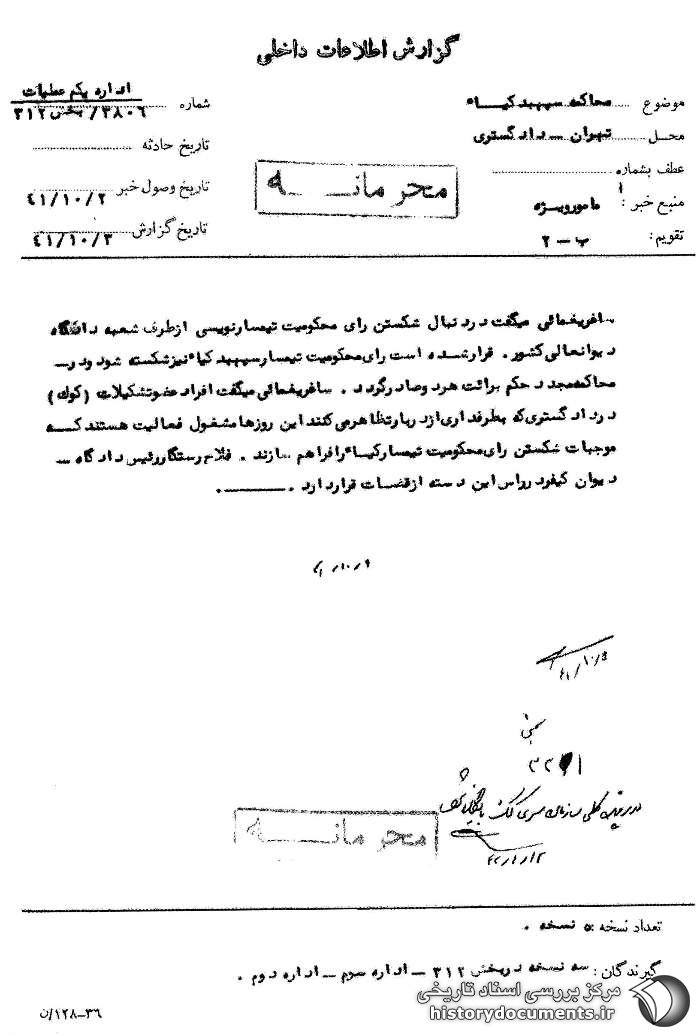 گزارش اطلاعات داخلی
موضوع محاکمه سپهبد کیاء
اداره یکم عملیات
شماره ۳۸۰۶/بخش ۳۱۲
محل تهران ـ دادگستری
تاریخ حادثه
عطف بشماره
محرمانه
تاریخ وصول خبر ۴۱/۱۰/۲
منبع خبر: مامور ویژه
تاریخ گزارش ۴۱/۱۰/۳
تقویم: ب ـ ۲
ساغریغمائی میگفت در دنبال شکستن رای محکومیت تیمسار نویسی ازطرف شعبه دادگاه
دیوانعالی کشور. قرارشده است رای محکومیت تیمسار سپهبد کیاء نیز شکسته شود و در ــ
محاکمه مجدد حکم برائت هر دو صادر گردد. ساغریغمائی میگفت افراد عضو تشکیلات (کوک)
در دادگستری که بطرفداری از دربار تظاهر می کنند این روزها مشغول فعالیت هستند کــه
موجبات شکستن رای محکومیت تیمسار کیاء را فراهم سازند. فلاح رستگار رئیس دادگاه ــ
دیوان کیفر در راس این دسته از قضات قرار دارد. ـــــــ.
۴۱/۱۰/۹
۴۱/۱۰/۵
در پرونده کلی سازمان سری کوک بایگانی شود
۴۲/۱/۱۲
محرمانه
تعداد نسخه: ۵ نسخه.
گیرندگان: سه نسخه در بخش ۳۱۲ ـ اداره سوم ـ اداره دوم.
۳۶-۱۲۸/ن
مرکز بررسی اسناد تاریخی
historydocuments.ir